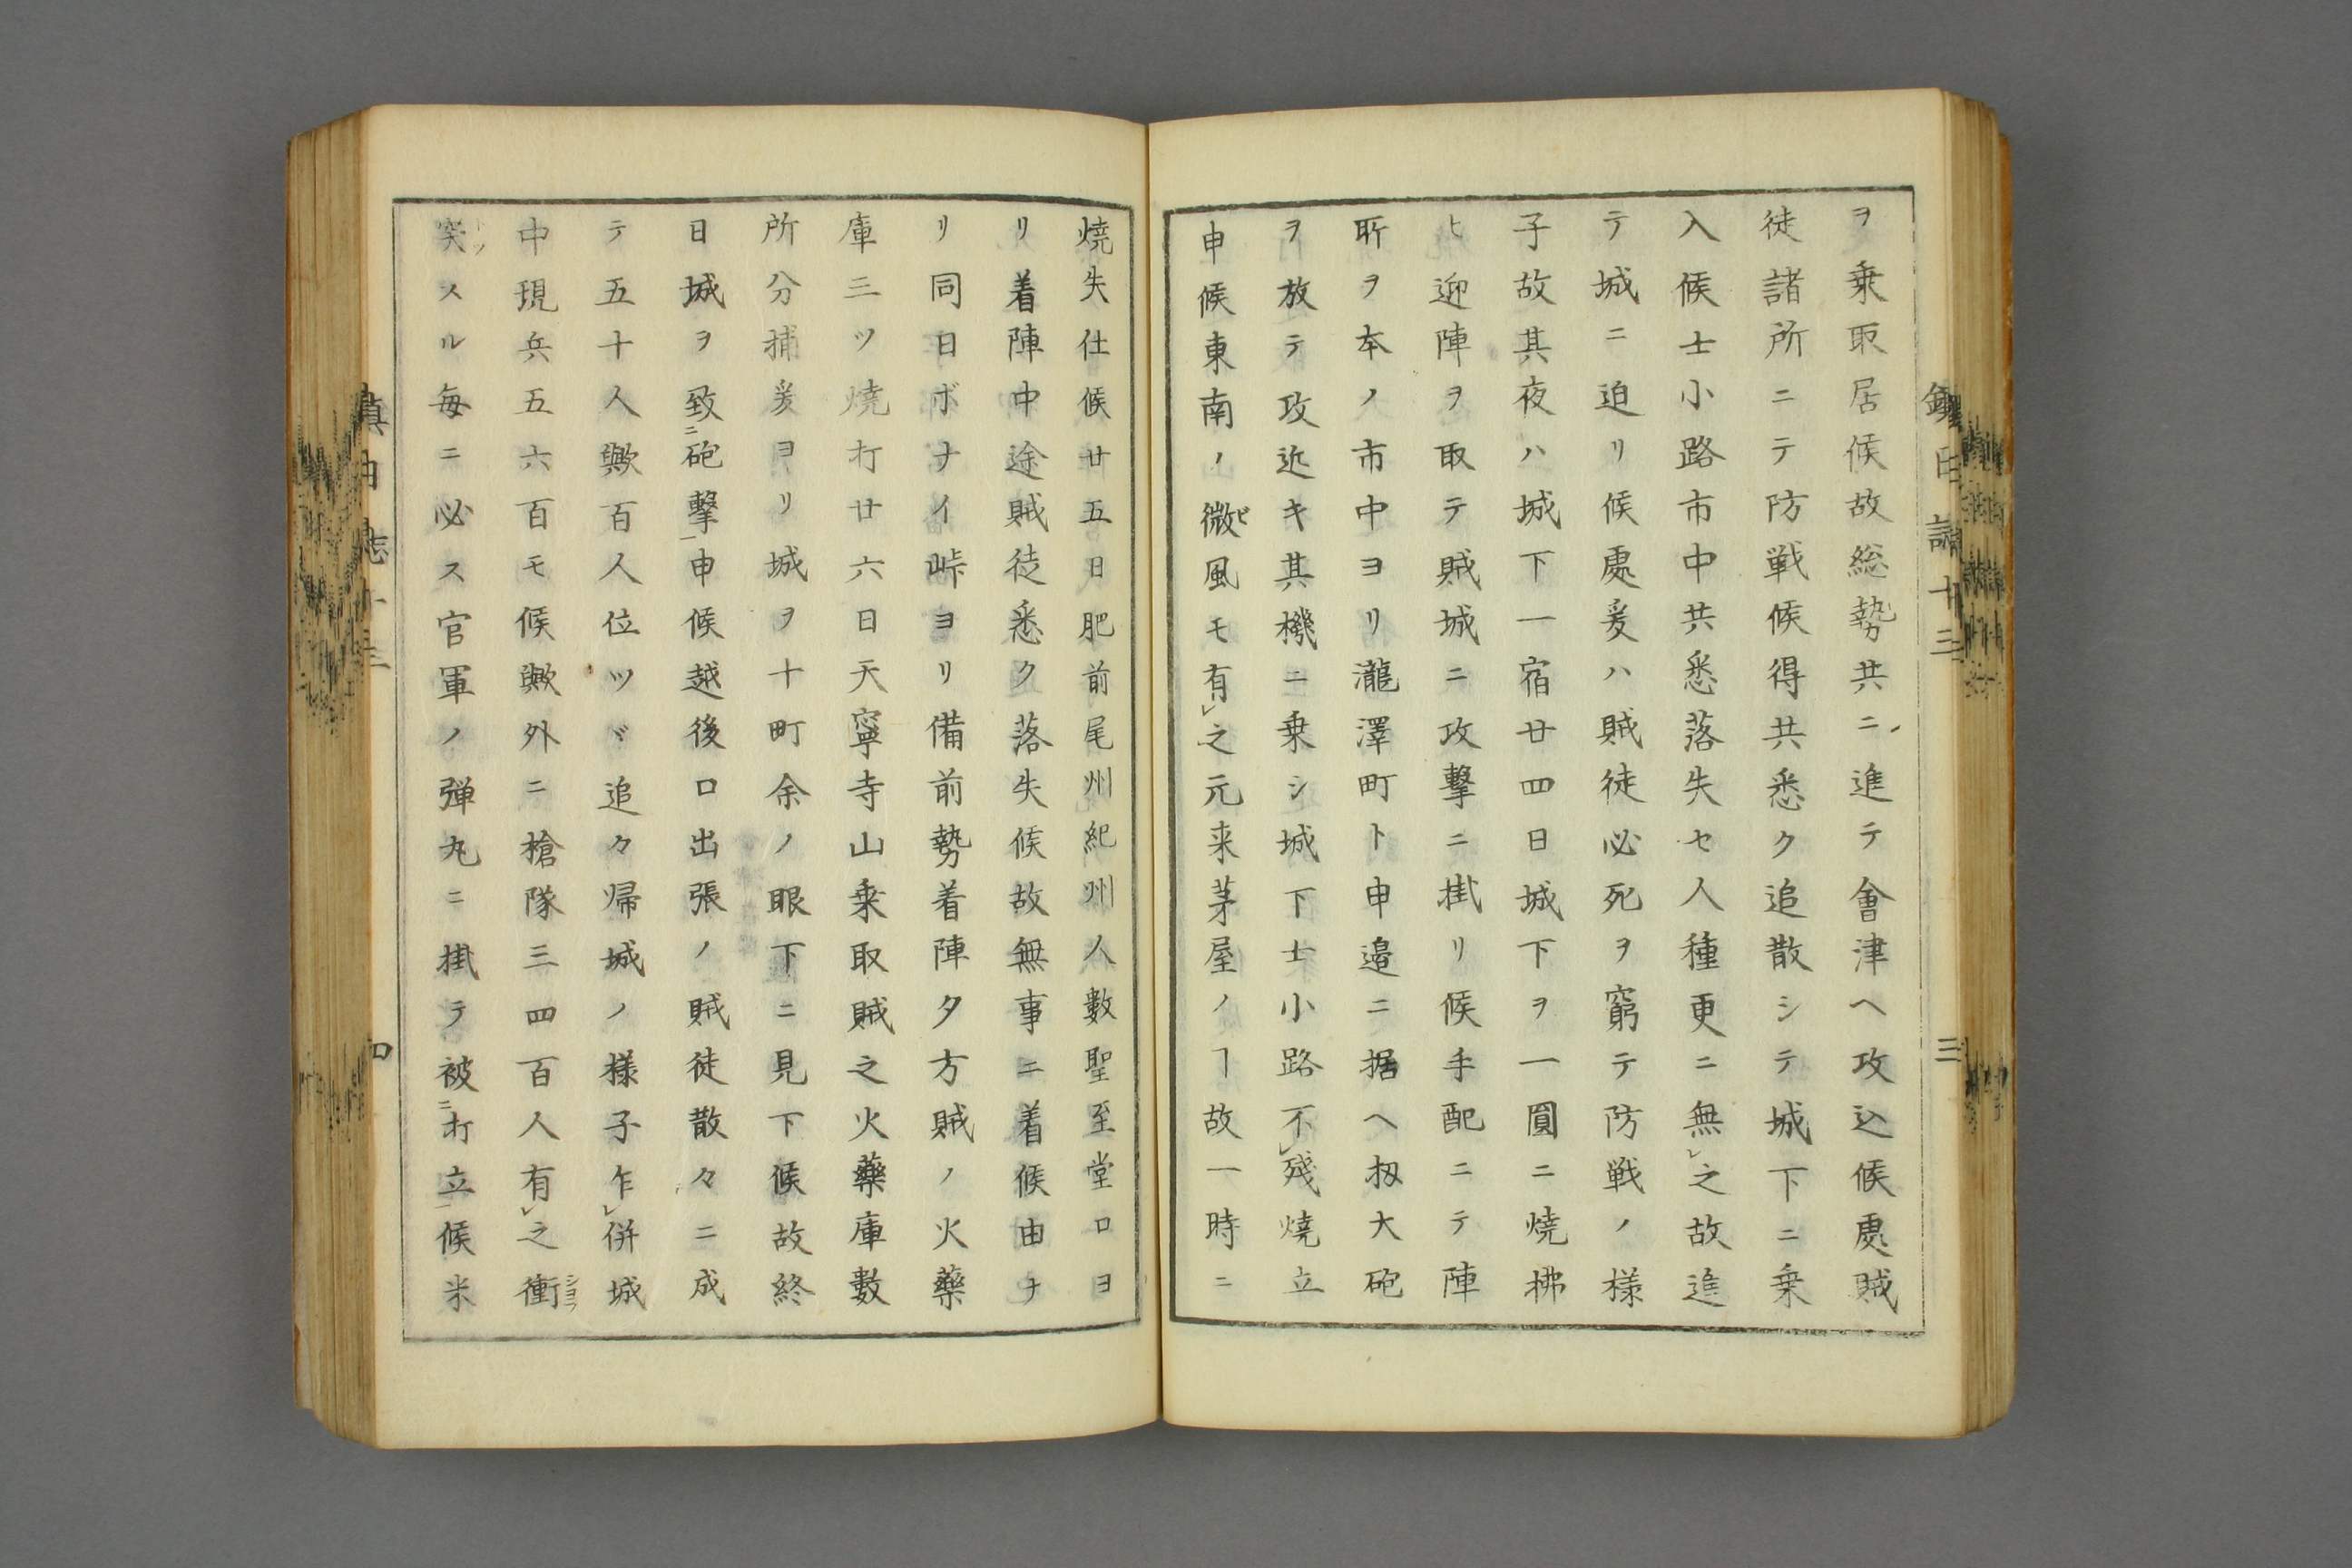 ヲ乗取居候故総勢共ニ進テ會津ヘ攻込候處賊
徒諸所ニテ防戦候得共悉ク追散シテ城下ニ乗
入候士小路市中共悉落失セ人種更ニ無レ之故進
テ城ニ迫リ候處爰ハ賊徒必死ヲ窮テ防戦ノ様
子故其夜ハ城下一宿廿四日城下ヲ一圓ニ燒拂
ヒ迎陣ヲ取テ賊城ニ攻撃ニ掛リ候手配ニテ陣
所ヲ本ノ市中ヨリ瀧澤町ト申邉ニ据ヘ扨大砲
ヲ放テ攻近キ其機ニ乗シ城下士小路不レ殘燒立
申候東南ノ微ビ風モ有レ之元来茅屋ノヿ故一時ニ
燒失仕候廿五日肥前尾州紀州人數聖至堂口ヨ
リ着陣中途賊徒悉ク落失候故無事ニ着候由ナ
リ同日ボナイ峠ヨリ備前勢着陣夕方賊ノ火藥
庫三ツ燒打廿六日天寧寺山乗取賊之火藥庫數
所分捕爰ヨリ城ヲ十町余ノ眼下ニ見下候故終
日城ヲ致ニ砲撃一申候越後口出張ノ賊徒散々ニ成
テ五十人歟百人位ツヾ追々帰城ノ様子乍レ併城
中現兵五六百モ候歟外ニ槍隊三四百人有レ之衝ショウ
突トツスル毎ニ必ス官軍ノ弾丸ニ掛テ被ニ打立一候米
三